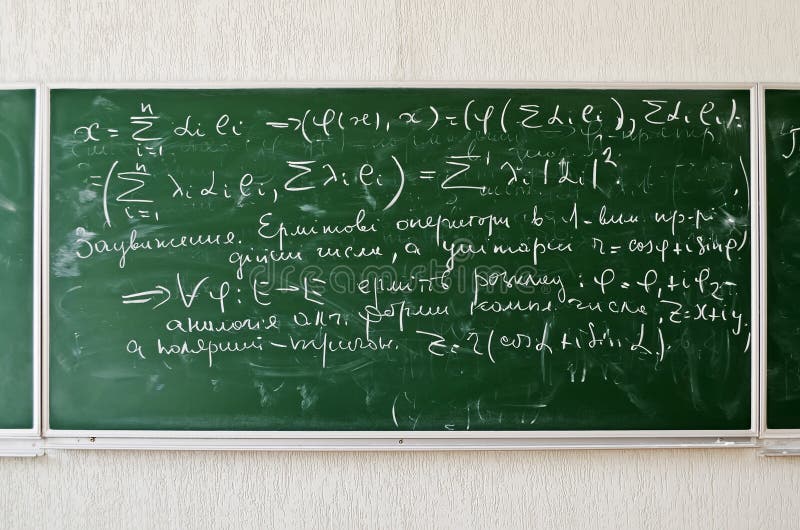 x = Σ_{i=1}^{n} αᵢ eᵢ ⇒ (φ(x), x) = (φ(Σ αᵢ eᵢ), Σ αᵢ eᵢ) =
= (Σ_{i=1}^{n} λᵢ αᵢ eᵢ, Σ λᵢ eᵢ) = Σ λᵢ |αᵢ|².
Зауваження. Ермітові оператори в 1-вим пр-рі
дійсні числа, а унітарні z = cosφ + i sinφ
⇒ ∀ φ: E → E ермітів розклад: φ = φ₁ + iφ₂ –
аналогія алг. форми компл. числа, z = x + iy,
а полярний – тригон. z = r(cos α + i sin α).
dreamstime